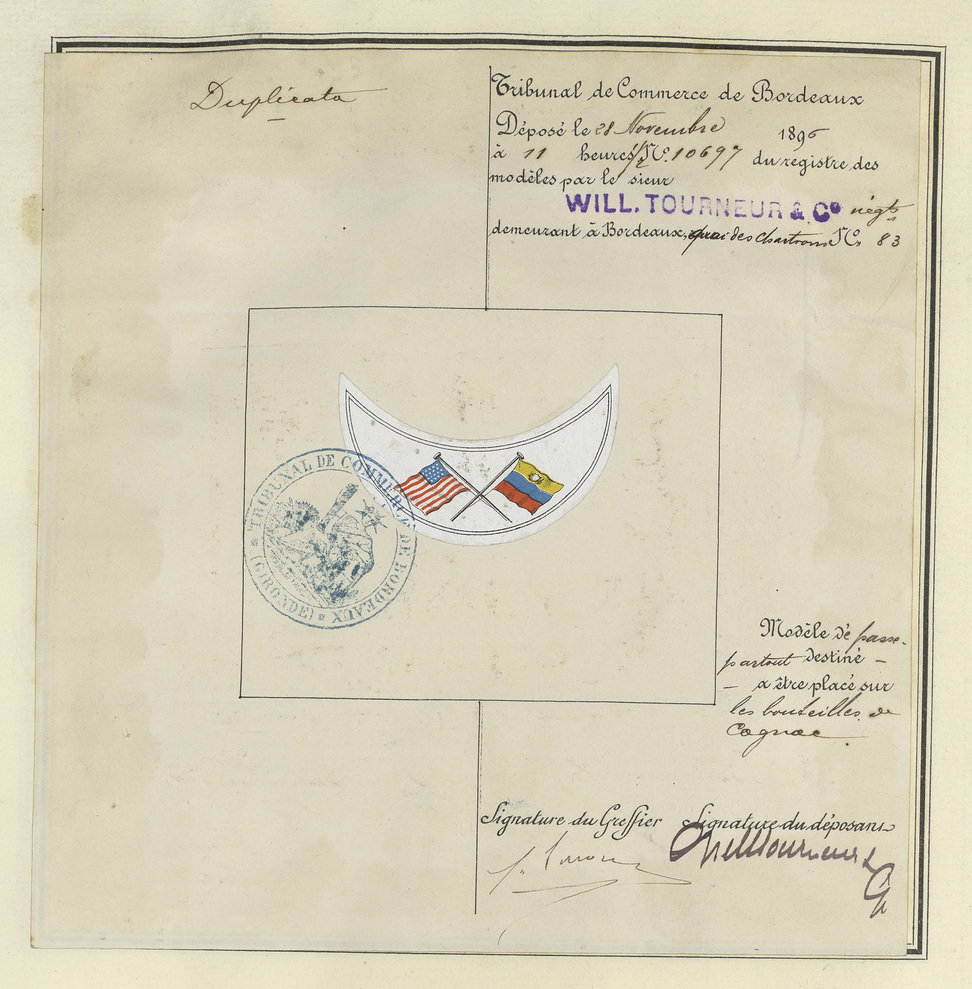 Duplicata
Tribunal de Commerce de Bordeaux
Déposé le 28 Novembre 1896
à 11 heures 1/2 No. 10697 du régistre des
modèles par le sieur
WILL. TOURNEUR & Co négts
demeurant à Bordeaux, quai des Chartrons No. 83
TRIBUNAL DE COMMERCE DE BORDEAUX
(GIRONDE)
Modèle de passe-
partout destiné -
- a être placé sur
les bouteilles de
Cognac
Signature du Greffier Signature du déposant
Will Tourneur & Co